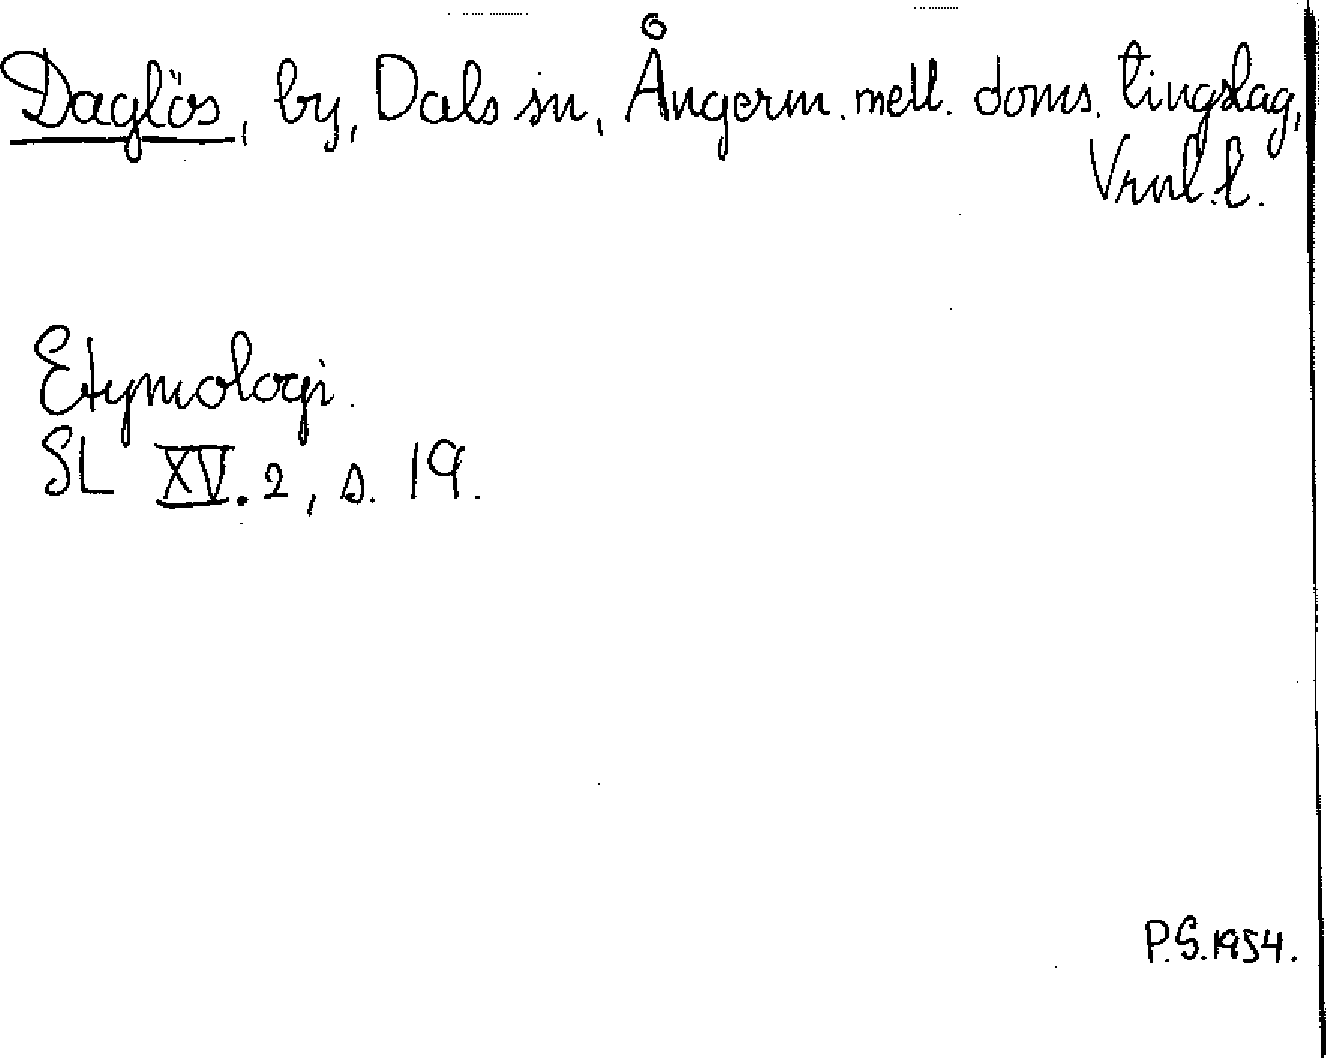 Daglös, by, Dals sn, Ångerm. mell. doms. tingslag,
Vrnl.l.
Etymologi.
SL XV.2, s. 19.
P.S. 1954.